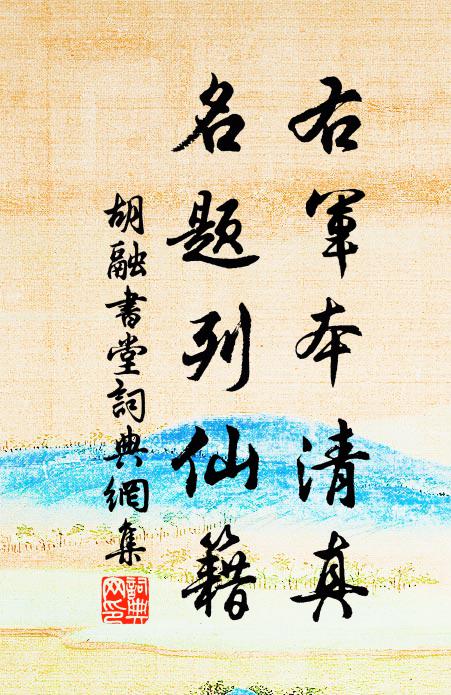 右軍本清真
名題列仙籍
胡融書堂詞典網集
詞典網印